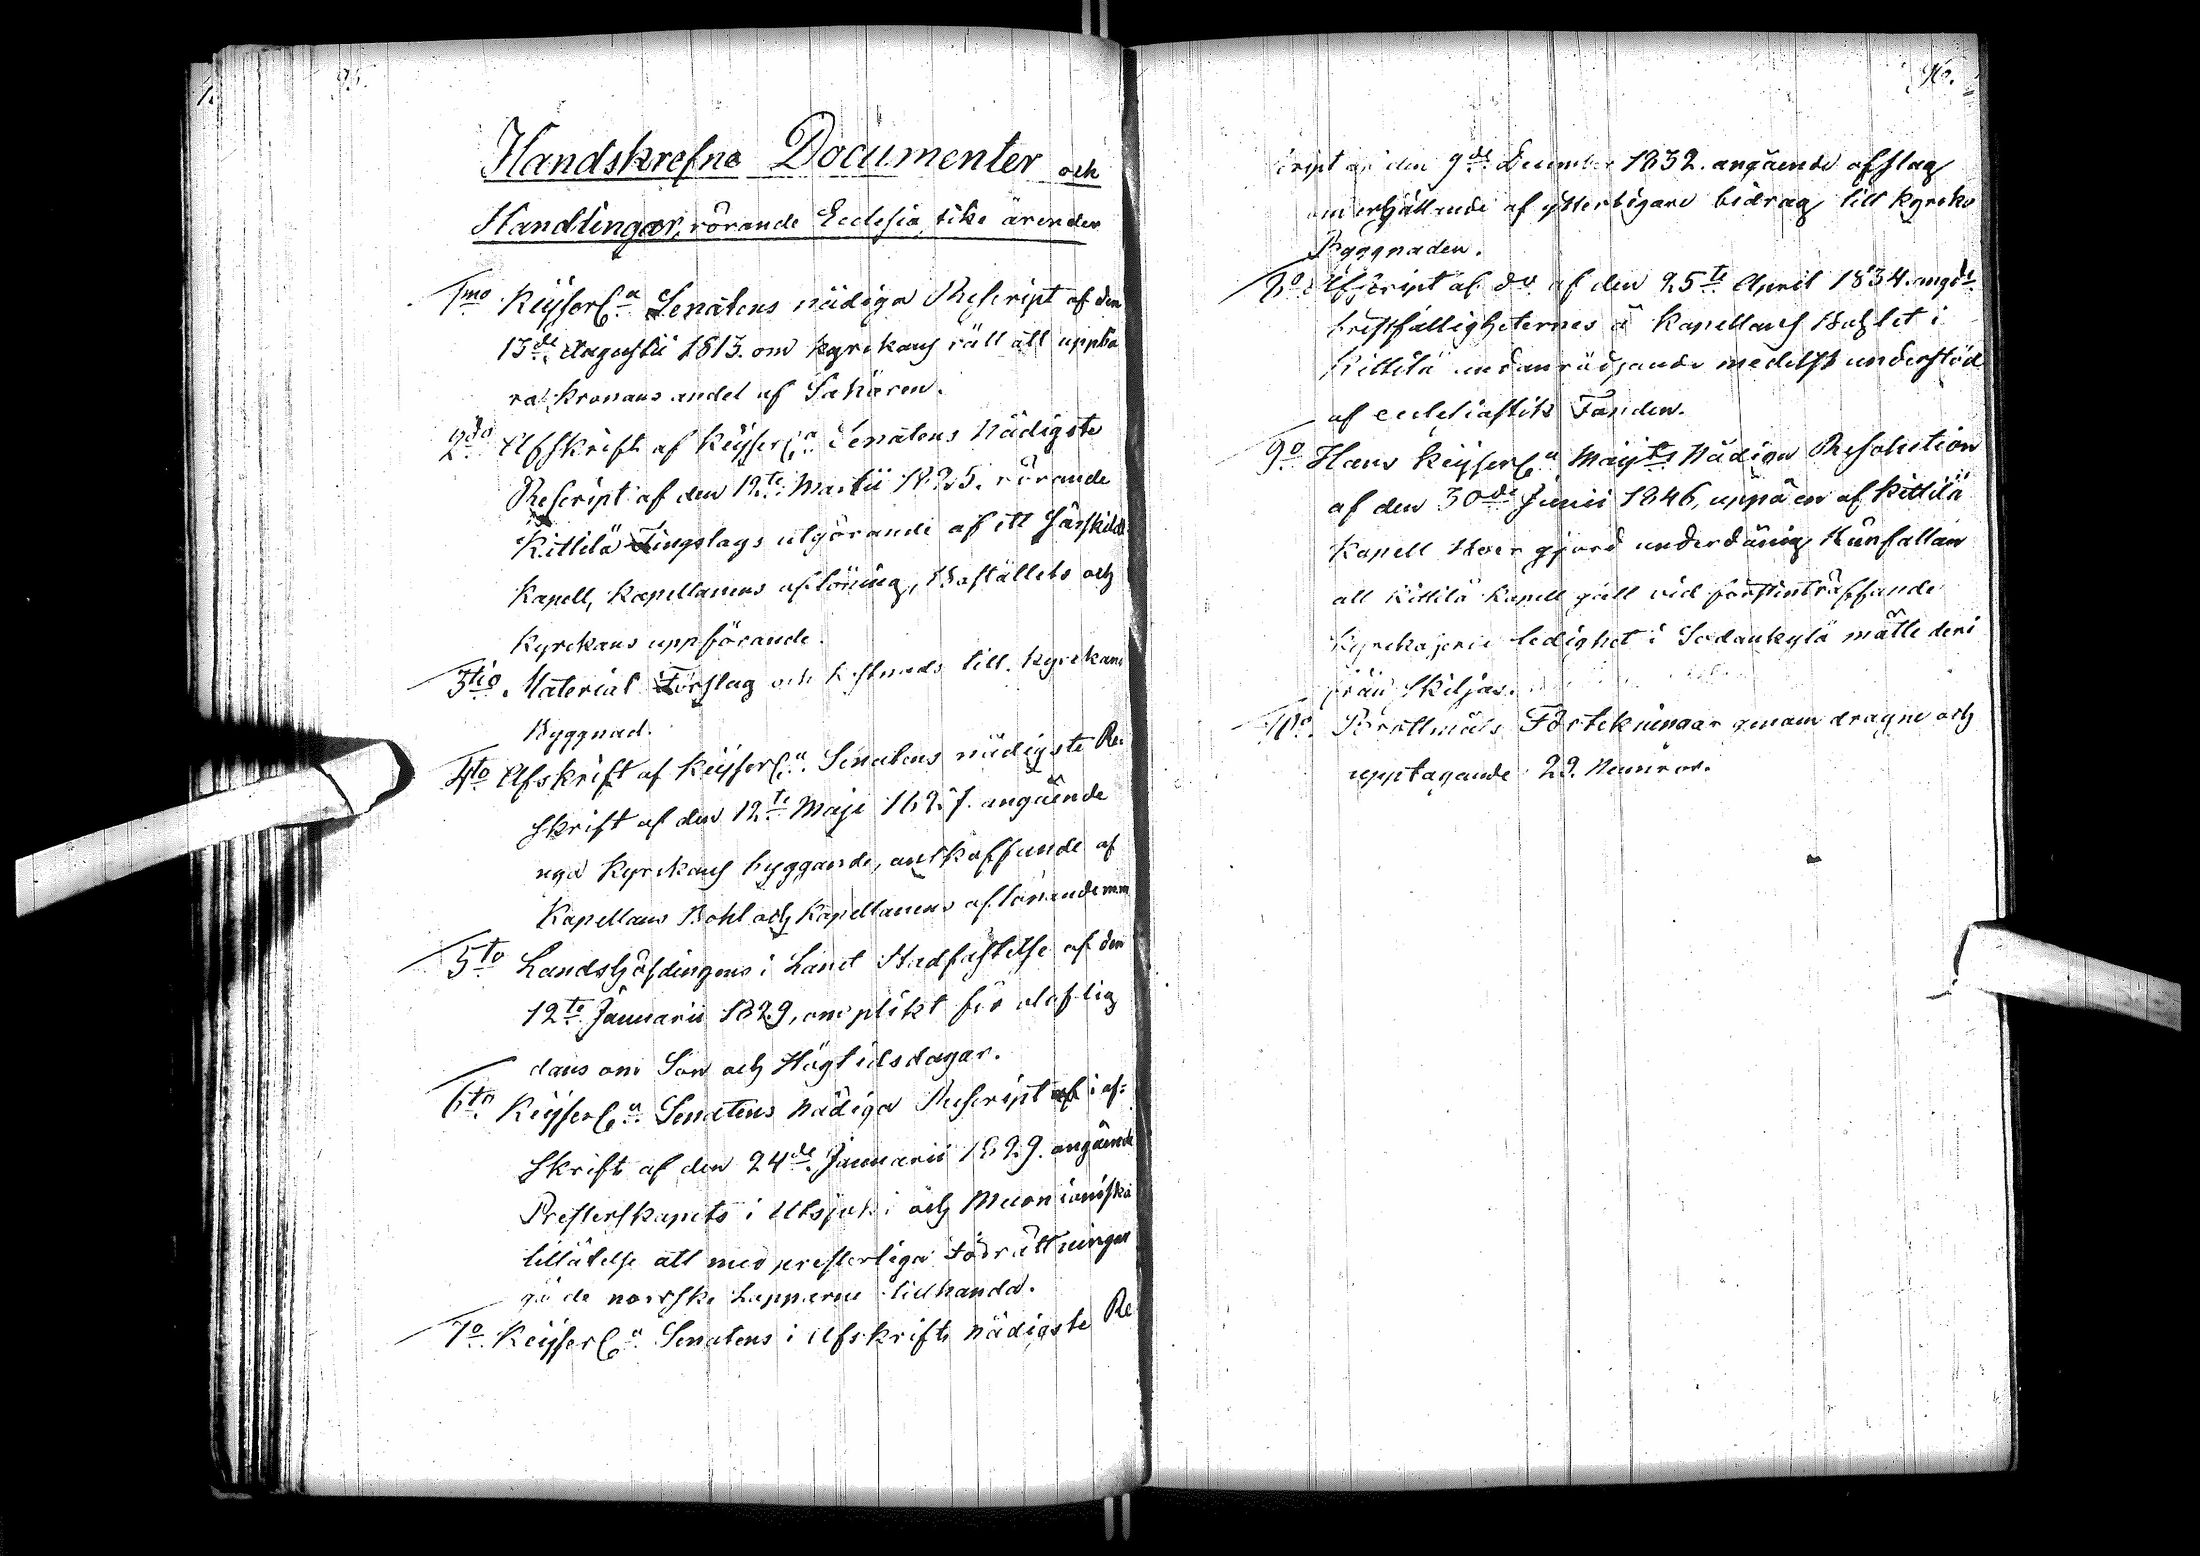 95.
Handskrefne Documenter och
Handlingar, rörande Ecclesiastike ärenden
1mo Keyserl:a Senatens nådiga Rescript af den
13de Augusti 1813. om kyrkans rätt att uppbä
ra Kronans andel af Sakören.
2do Afskrift af Keyserl:a Senatens Nådigste
Rescript af den 12te Martii 1825. rörande
Kittilä Tingslags utgörande af ett särskildt
Kapell, Kapellanens aflöning, Boställets och
Kyrckans uppförande.
3tio Material Förslag och Kostnads till Kyrckans
Byggnad.
4to Afskrift af Keyserl:a Senatens nådigste Re-
skrift af den 12te Maji 1827. angående
nya Kyrckans byggande, anskaffande af
Kapellans Bohl och Kapellanens aflönande mm
5to Landshöfdingens i Länet Stadfästelse af den
12te Januarii 1829, om plikt för olaflig
dans om Sön och Högtidsdagar.
6to Keyserl:a Senatens Nådiga Rescript i af-
skrift af den 24de Januarii 1829. angående
Presterskapets i Utsjoki och Muonioniska
tillåtelse att med presterliga Förrättningar
gå de norrske Lapparne tillhanda.
7o Keyserl:a Senatens i Afskrift Nådigste Re
96.
script af den 9de December 1832. angående afslag
om erhållande af ytterligare bidrag till Kyrcko
Byggnaden.
8o Afscript af do af den 25te April 1834. angde
bristfälligheternes å Kapellans Bohlet i
Kittilä undanrödjande medelst understöd
af ecclesiastik Fonden.
9o Hans Keyserl:a Maijts Nådiga Resolution
af den 30de Junii 1846, uppå en af Kittilä
Kapell Boer gjord underdånig Anhållan
att Kittilä Kapell gäll vid först inträffande
Kyrckoherde ledighet i Sodankylä måtte deri
från skiljas.
10o. Brottmåls Förtekningar genom dragne och
upptagande 29. Numror.